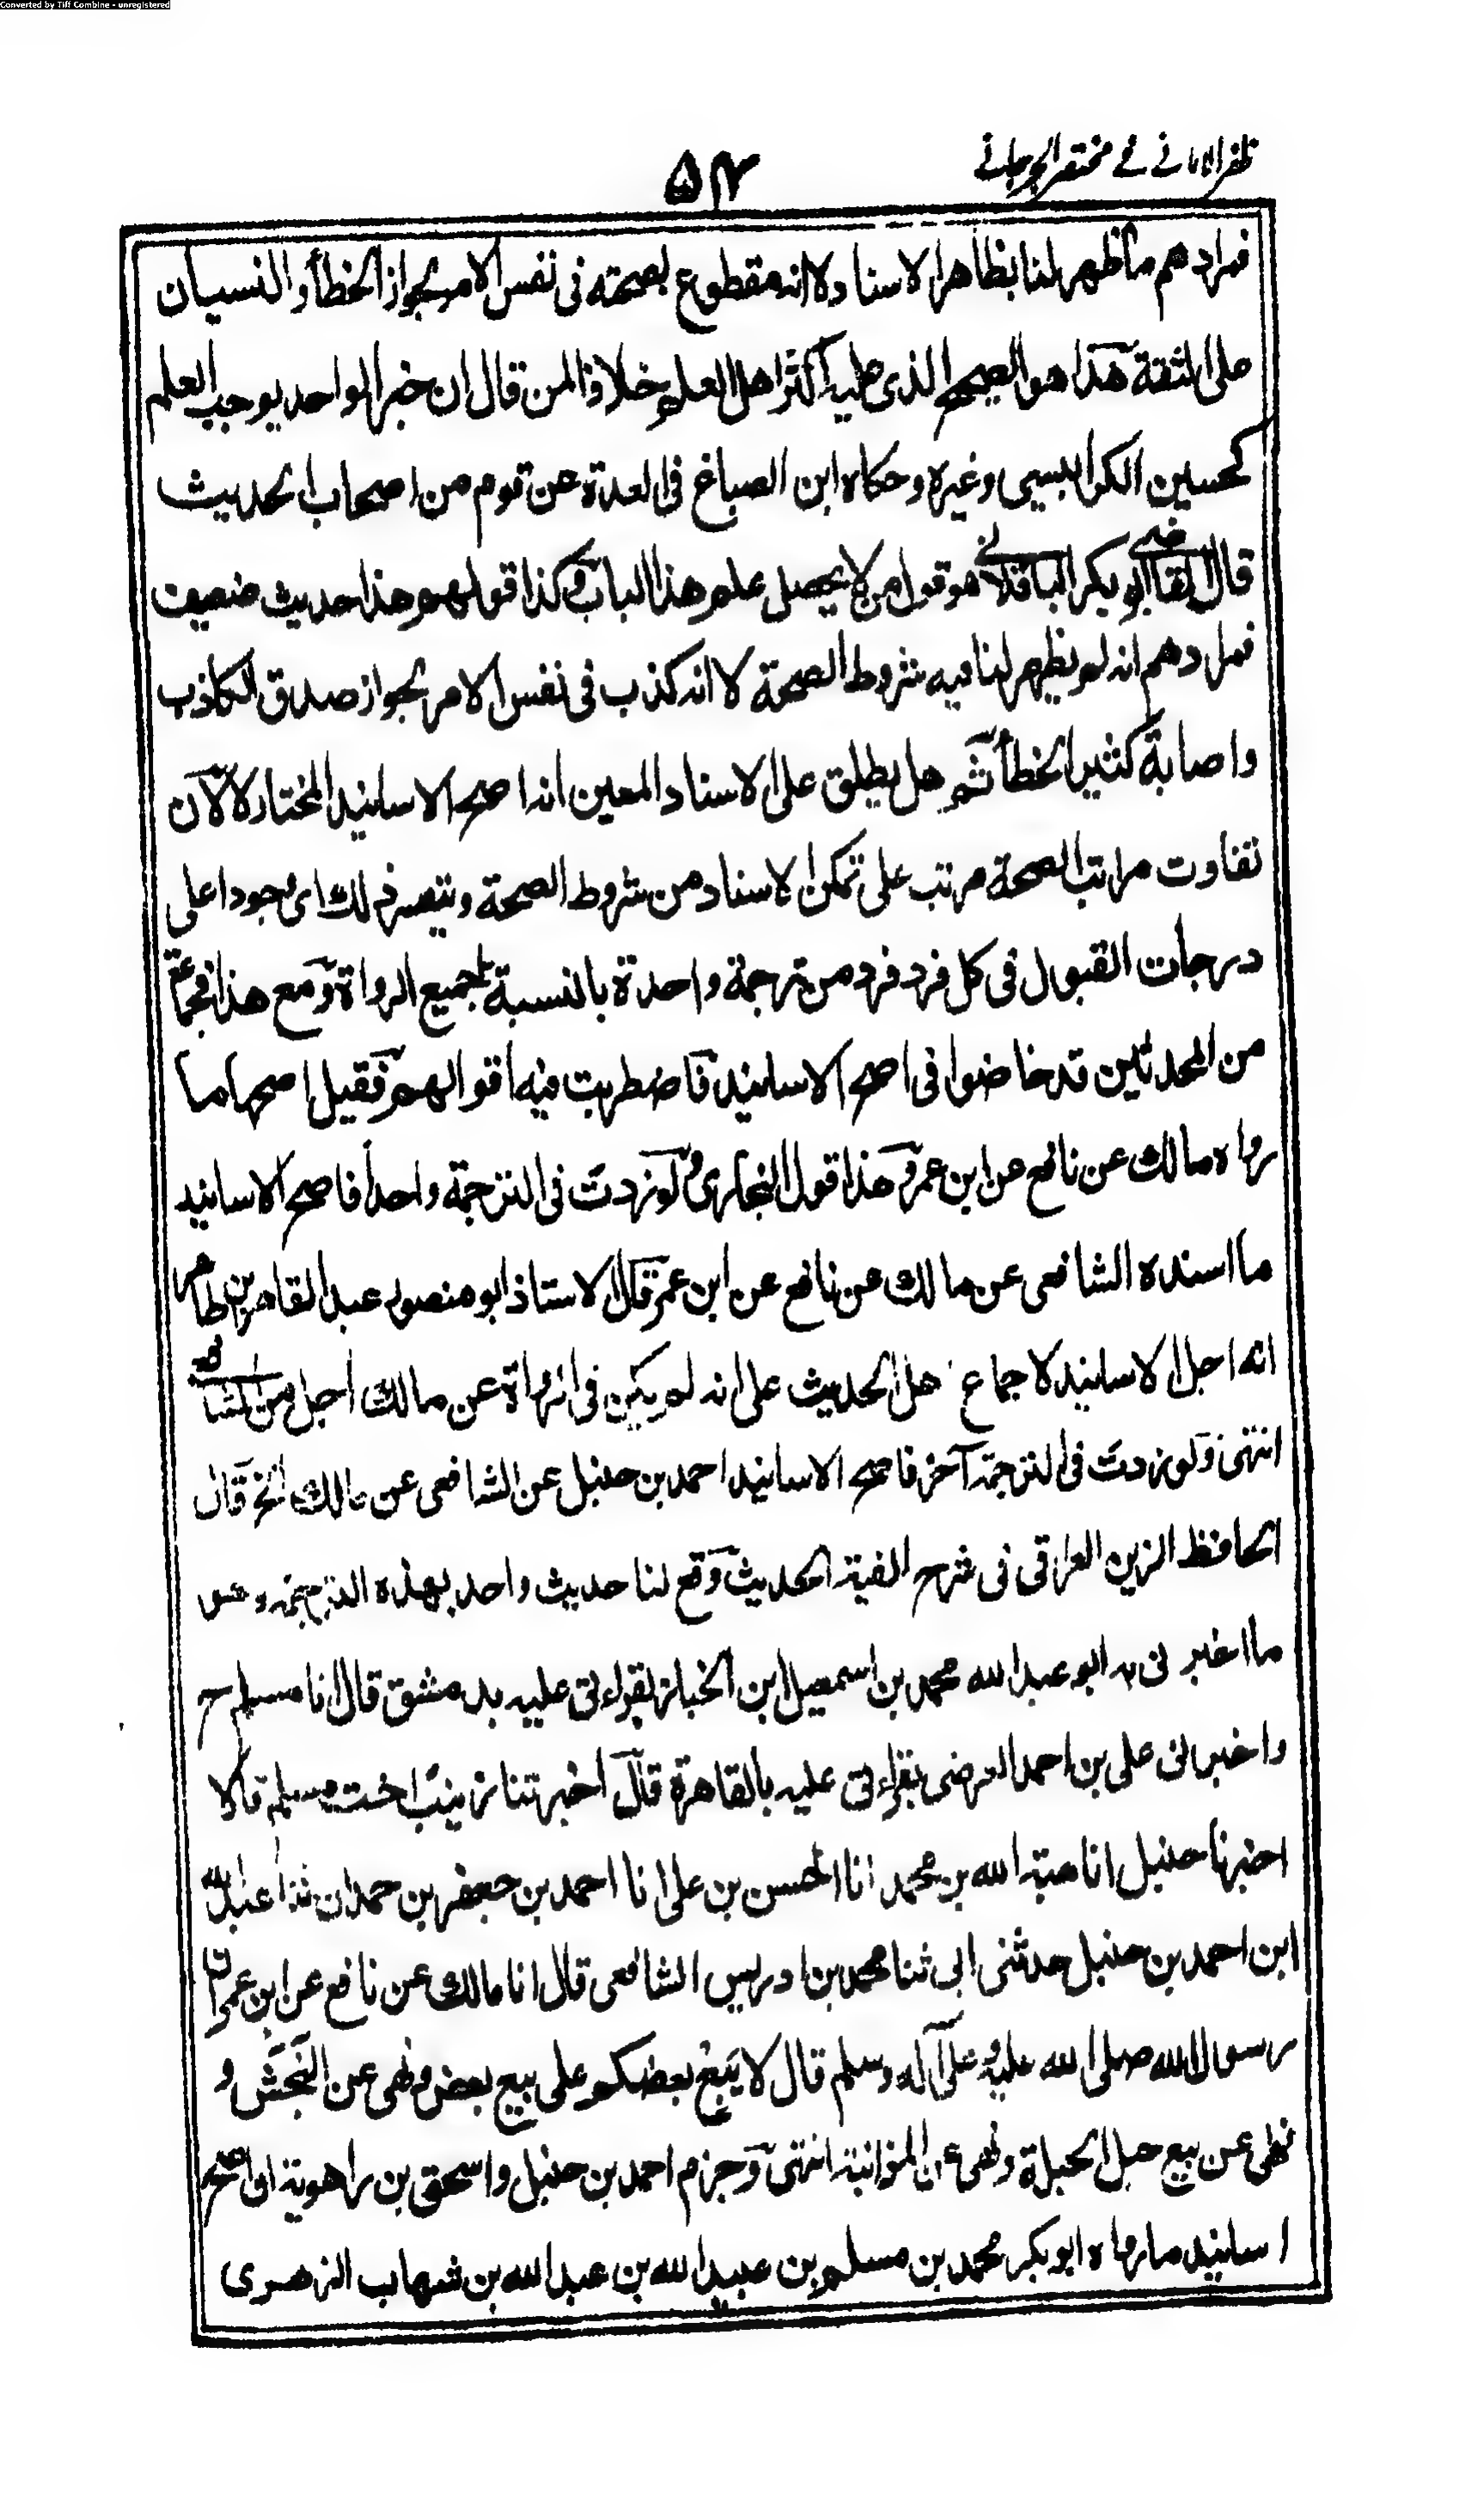 Converted by Tiff Combine - unregistered
ظفر الامانے فے مختصر الجرجانے
۵۴
فمرادهم ما ظهر لنا بظاهر الاسناد لا انه مقطوع بصحته فى نفس الامر لجواز الخطأ والنسيان
على الثقة هذا هو الصحيح الذى عليه اكثر اهل العلم خلافا لمن قال ان خبر الواحد يوجب العلم
كحسين الكرابيسى وغيره وحكاه ابن الصباغ فى العدة عن قوم من اصحاب الحديث
قال القاضى ابو بكر الباقلانے هو قول من لا يحصل علم هذا الباب وكذا قولهم هذا حديث ضعيف
فمرادهم انه لم يظهر لنا فيه شروط الصحة لا انه كذب فى نفس الامر لجواز صدق الكاذب
واصابة كثير الخطأ ثم هل يطلق على الاسناد المعين انه اصح الاسانيد المختار لا لان
تفاوت مراتب الصحة مرتب على تمكن الاسناد من شروط الصحة ويتعسر ذلك اى وجود اعلى
درجات القبول فى كل فرد فرد من ترجمة واحدة بالنسبة لجميع الرواة ومع هذا فجماعة
من المحدثين قد خاضوا فى اصح الاسانيد فاضطربت فيه اقوالهم فقيل اصحها ما
رواه مالك عن نافع عن ابن عمر وهذا قول البخارى ولو زدت فى الترجمة واحدا فاصح الاسانيد
ما اسنده الشافعى عن مالك عن نافع عن ابن عمر قال الاستاذ ابو منصور عبد القاهر بن طاهر
انه اجل الاسانيد لاجماع اهل الحديث على انه لم يكن فى الرواة عن مالك اجل من الشافعى
انتهى ولو زدت فى الترجمة آخر فاصح الاسانيد احمد بن حنبل عن الشافعى عن مالك الخ قال
الحافظ الزين العراقى فى شرح الفية الحديث وقع لنا حديث واحد بهذه الترجمة وهو
ما اخبرنى به ابو عبد الله محمد بن اسمعيل ابن الخباز بقراءتى عليه بدمشق قال انا مسلم ح
واخبرنى على بن احمد العرضى بقراءتى عليه بالقاهرة قال اخبرتنا زينب اخت مسلم قالا
اخبرنا حنبل انا هبة الله بن محمد انا الحسن بن على انا احمد بن جعفر بن حمدان ثنا عبد الله
ابن احمد بن حنبل حدثنى ابى ثنا محمد بن ادريس الشافعى قال انا مالك عن نافع عن ابن عمر ان
رسول الله صلى الله عليه وعلى آله وسلم قال لا يبع بعضكم على بيع بعض ونهى عن النجش و
نهى عن بيع حبل الحبلة ونهى عن المزابنة انتهى وجزم احمد بن حنبل واسحق بن راهوية ان اصح
اسانيد ما رواه ابو بكر محمد بن مسلم بن عبيد الله بن عبد الله بن شهاب الزهرى